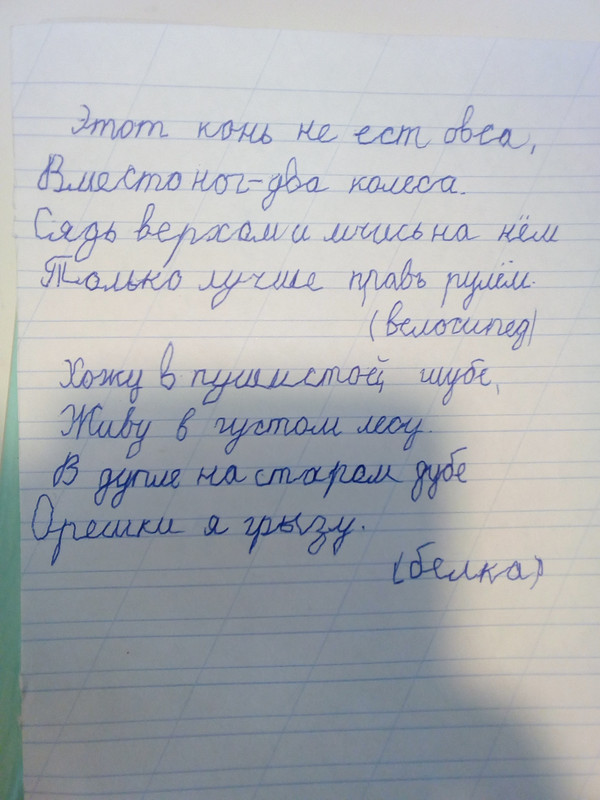 Этот конь не ест овса,
Вместо ног-два колеса.
Сядь верхом и мчись на нём
Только лучше правь рулём.
(велосипед)
Хожу в пушистой шубе,
Живу в густом лесу.
В дупле на старом дубе
Орешки я грызу.
(белка)